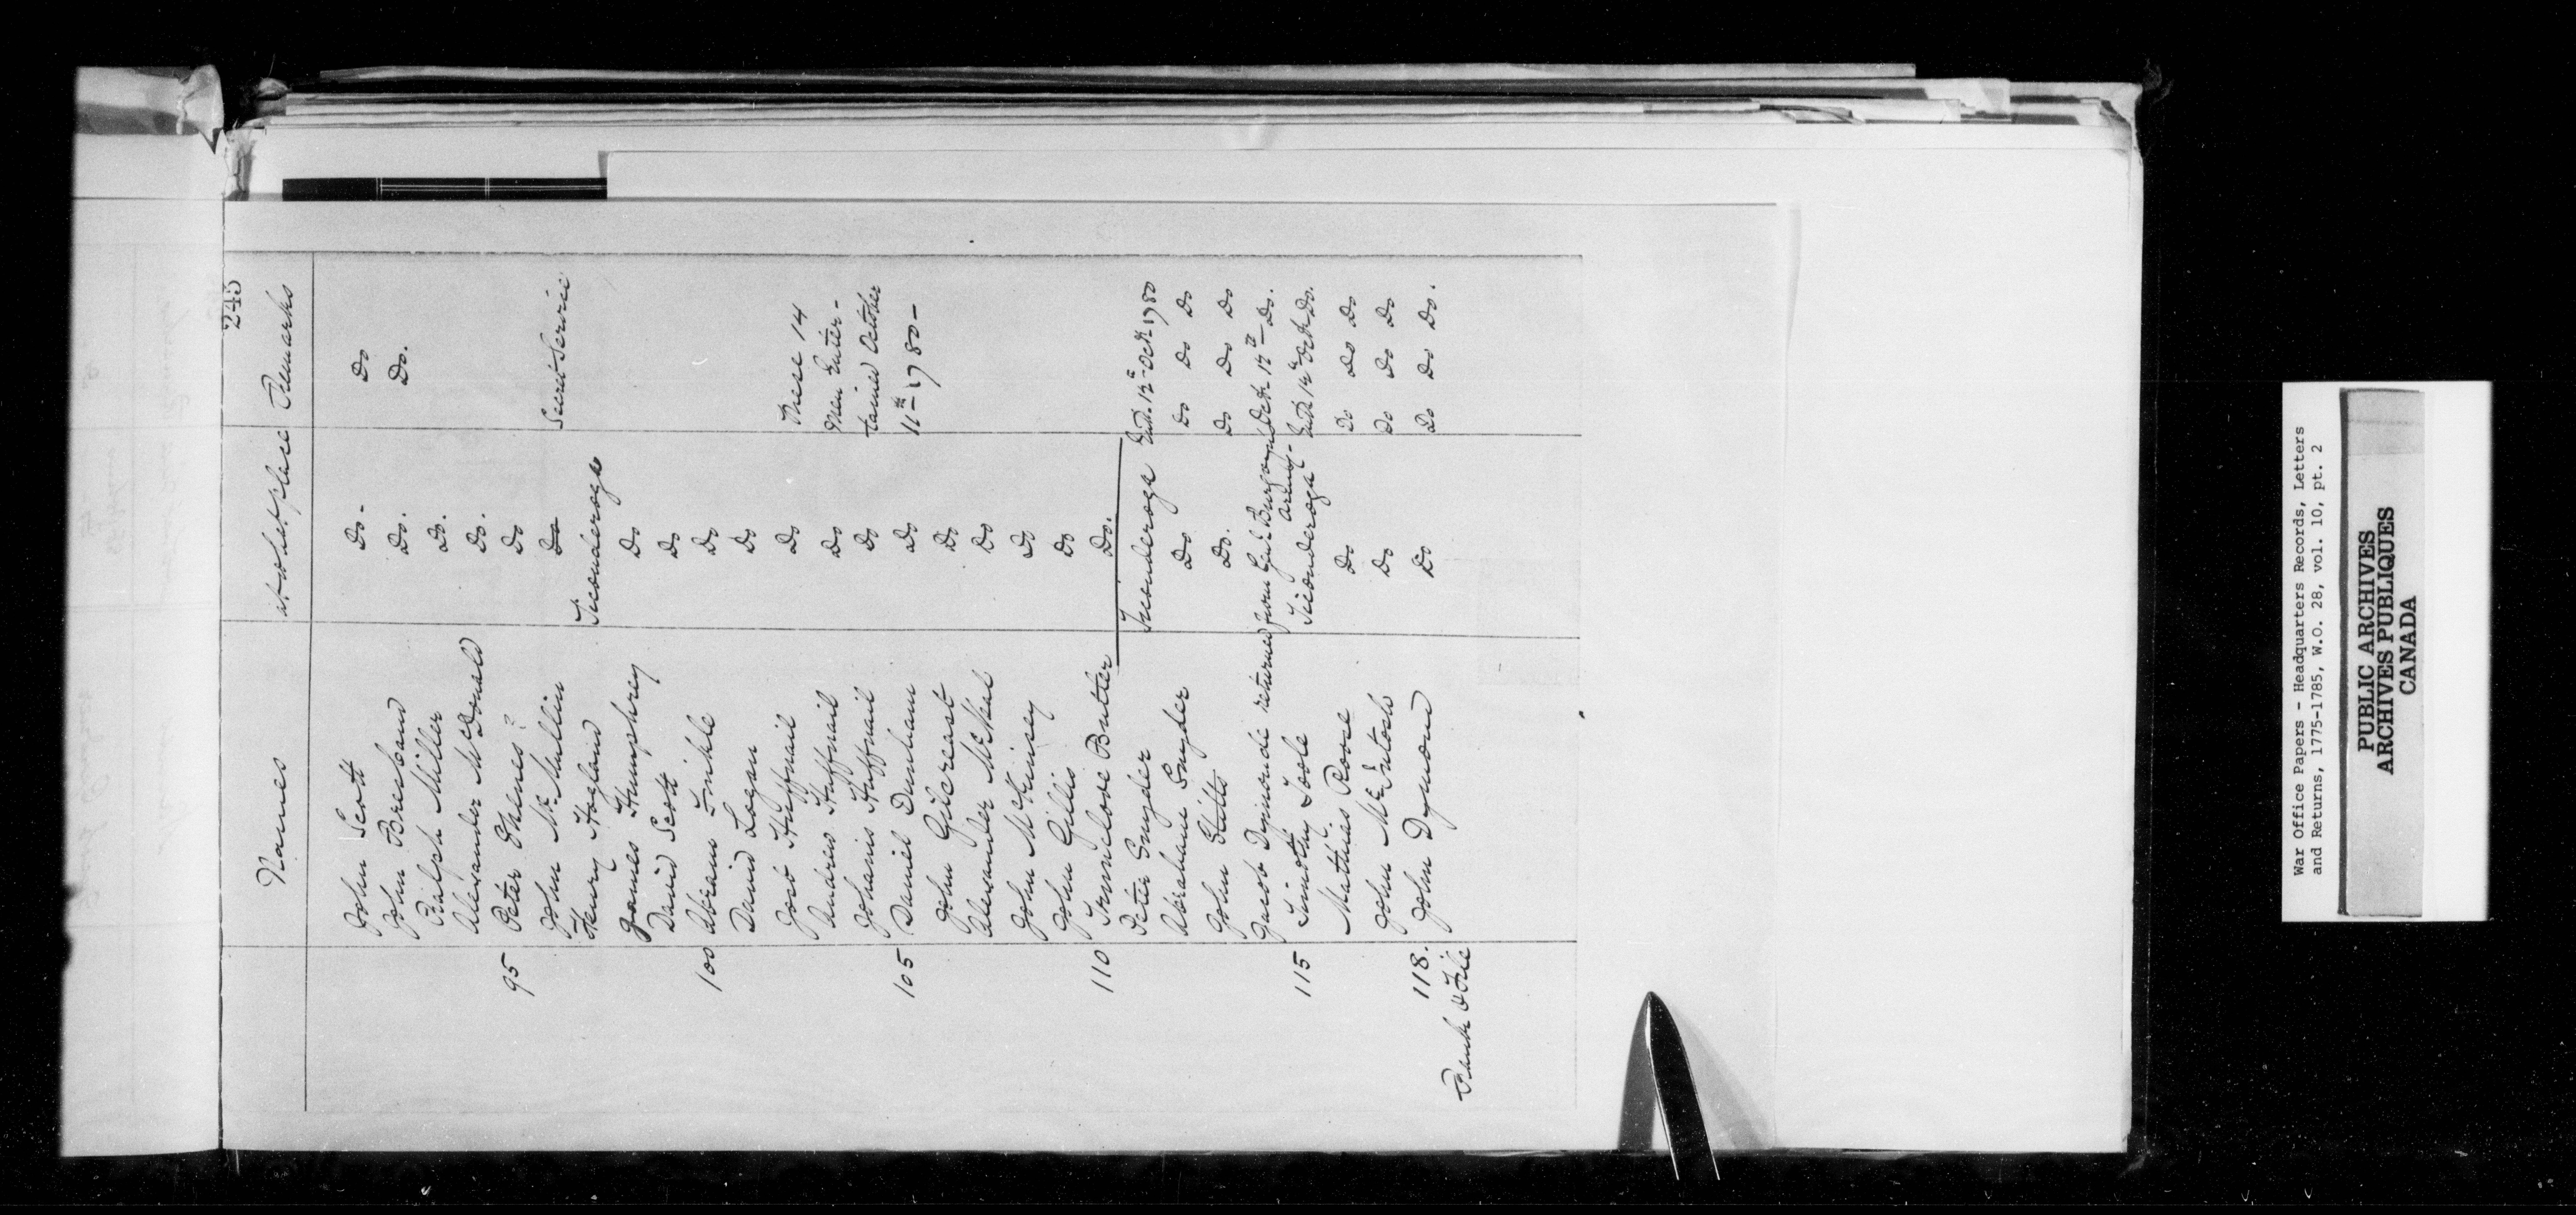 245
Names at what place Remarks
John Scott Do- Do
John Brereband Do. Do.
Ralph Miller Do.
Alexander McDonald Do.
95 Peter Thenes? Do
John McMullin Do Secret Service
Henry Hogland Ticonderoga
James Humphrey Do
David Scott Do
100 Abram Frihle Do
David Logan Do
Jost Huffnail Do These 14
Andrew Huffnail Do Men Enter-
Johanis Huffnail Do tained October
105 Daniel Dunham Do 11th 1780-
John Gilcreast Do
Alexander McNeil Do
John McKinsey Do
John Gillis Do
110 Truelove Butler Do.
Peter Snyder Ticonderoga Entd. 12th Octr. 1780
Abraham Snyder Do Do Do Do
John Stitts Do. Do Do Do
Jacob Dymonde returned from Genl Burgoynd Octr 12th Do.
Army-
115 Timothy Toole Ticonderoga Entd 14th Octr Do.
Mathias Rose Do Do Do Do
John McEntosh Do Do Do Do
118. John Dymond Do Do Do Do.
Rank & File
War Office Papers - Headquarters Records, Letters
and Returns, 1775-1785, W.O. 28, vol. 10, pt. 2
PUBLIC ARCHIVES
ARCHIVES PUBLIQUES
CANADA